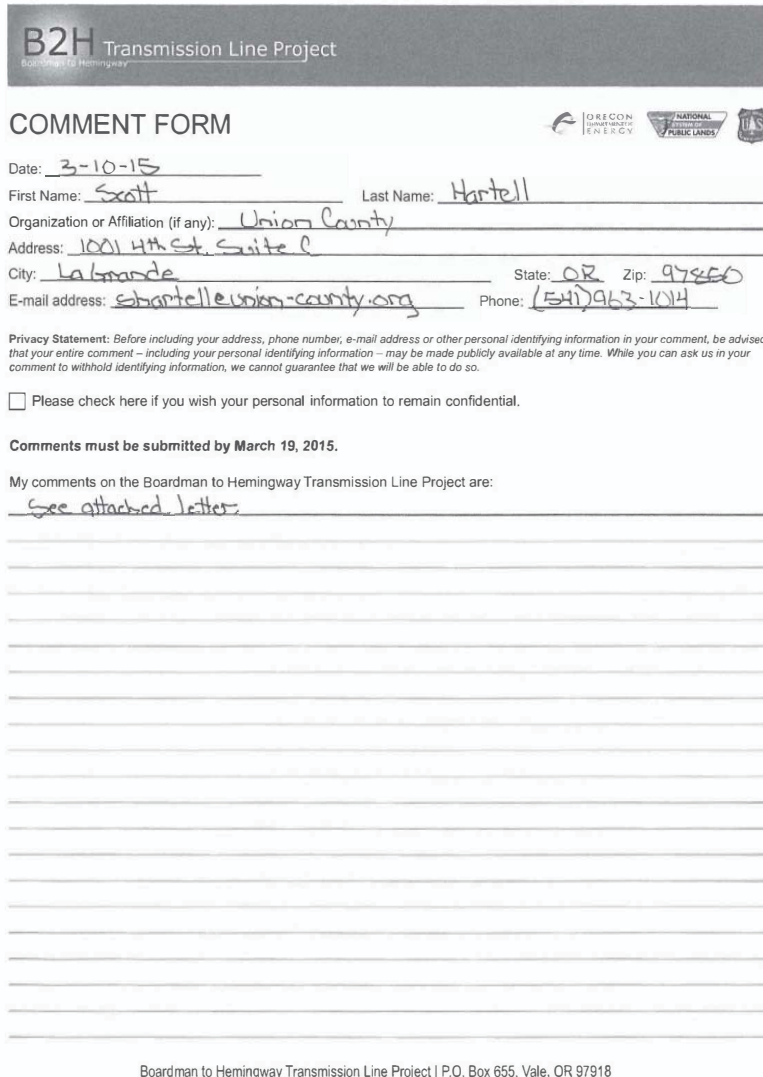 B2H Transmission Line Project
Boardman to Hemingway
COMMENT FORM
OREGON
DEPARTMENT OF
ENERGY
NATIONAL
SYSTEM OF
PUBLIC LANDS
Date: 3-10-15
First Name: Scott Last Name: Hartell
Organization or Affiliation (if any): Union County
Address: 1001 4th St. Suite C
City: La Grande State: OR Zip: 97850
E-mail address: shartell@union-county.org Phone: (541)963-1014
Privacy Statement: Before including your address, phone number, e-mail address or other personal identifying information in your comment, be advised
that your entire comment – including your personal identifying information – may be made publicly available at any time. While you can ask us in your
comment to withhold identifying information, we cannot guarantee that we will be able to do so.
Please check here if you wish your personal information to remain confidential.
Comments must be submitted by March 19, 2015.
My comments on the Boardman to Hemingway Transmission Line Project are:
See attached letter.
Boardman to Hemingway Transmission Line Project | P.O. Box 655, Vale, OR 97918